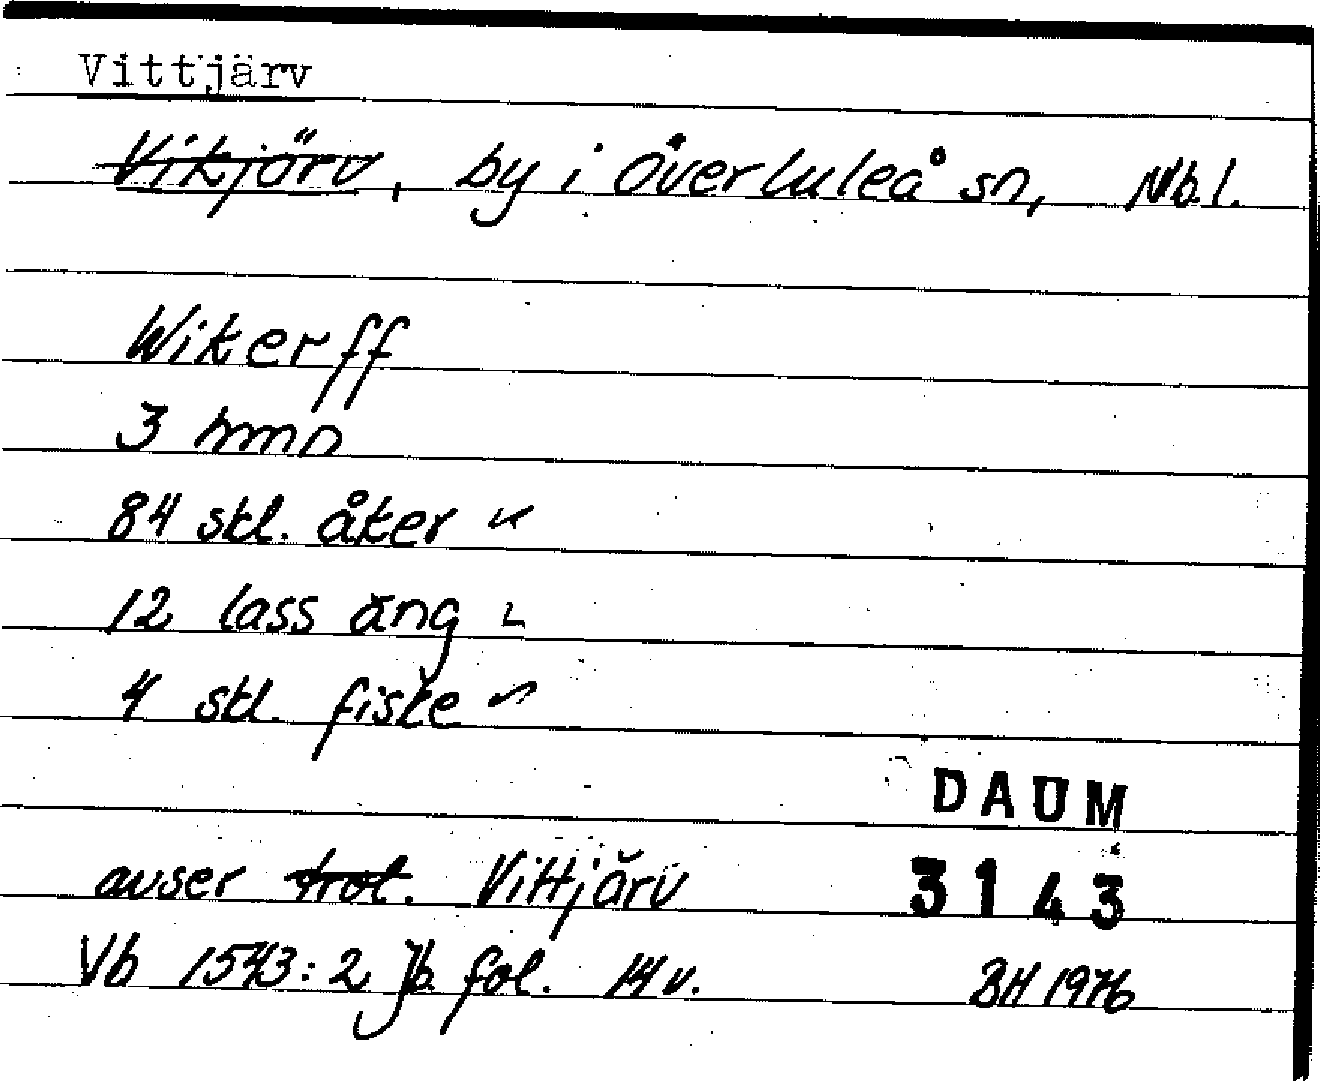 Vittjärv
Vikjärv, by i Överluleå sn, Nb.l.
Wikerff
3 hmn
84 skl. åker
12 lass äng
4 skl. fiske
DAUM
avser trol. Vittjärv
3143
Vb 1543:2 Jb fol. 14 v.
BH 1976